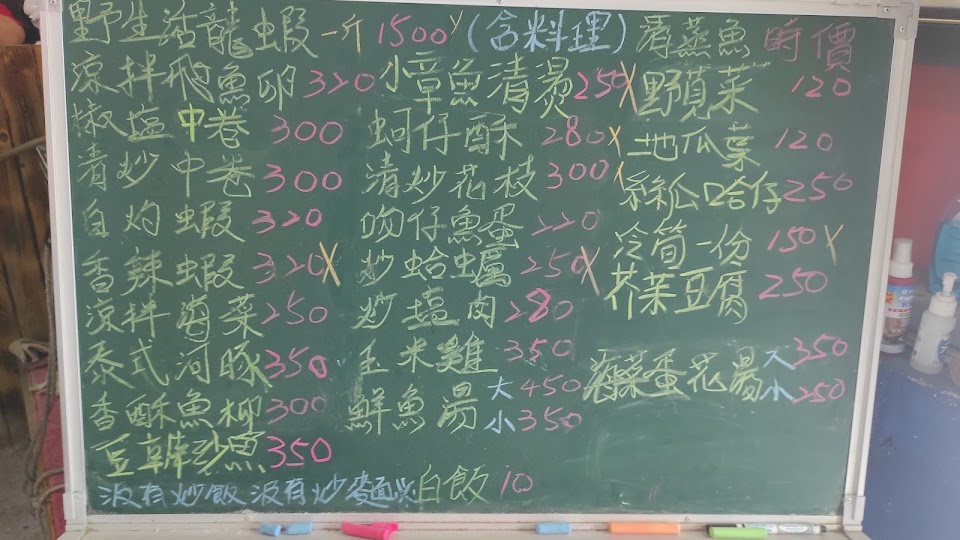 野生活龍蝦一斤1500 (含料理)
涼拌飛魚卵320
椒塩中卷300
清炒中卷300
白灼蝦320
香辣蝦320X
涼拌海菜250
泰式河豚350
香酥魚柳300
豆瓣沙魚350
小章魚清燙250X
蚵仔酥280X
清炒花枝300
吻仔魚蛋220
炒蛤蠣250X
炒塩肉280
玉米雞350
鮮魚湯大450
小350
清蒸魚時價
野莧菜120
地瓜葉120
絲瓜蛤仔250
冷筍一份150
芥茉豆腐250
海菜蛋花湯大350
小250
沒有炒飯沒有炒麵
白飯10